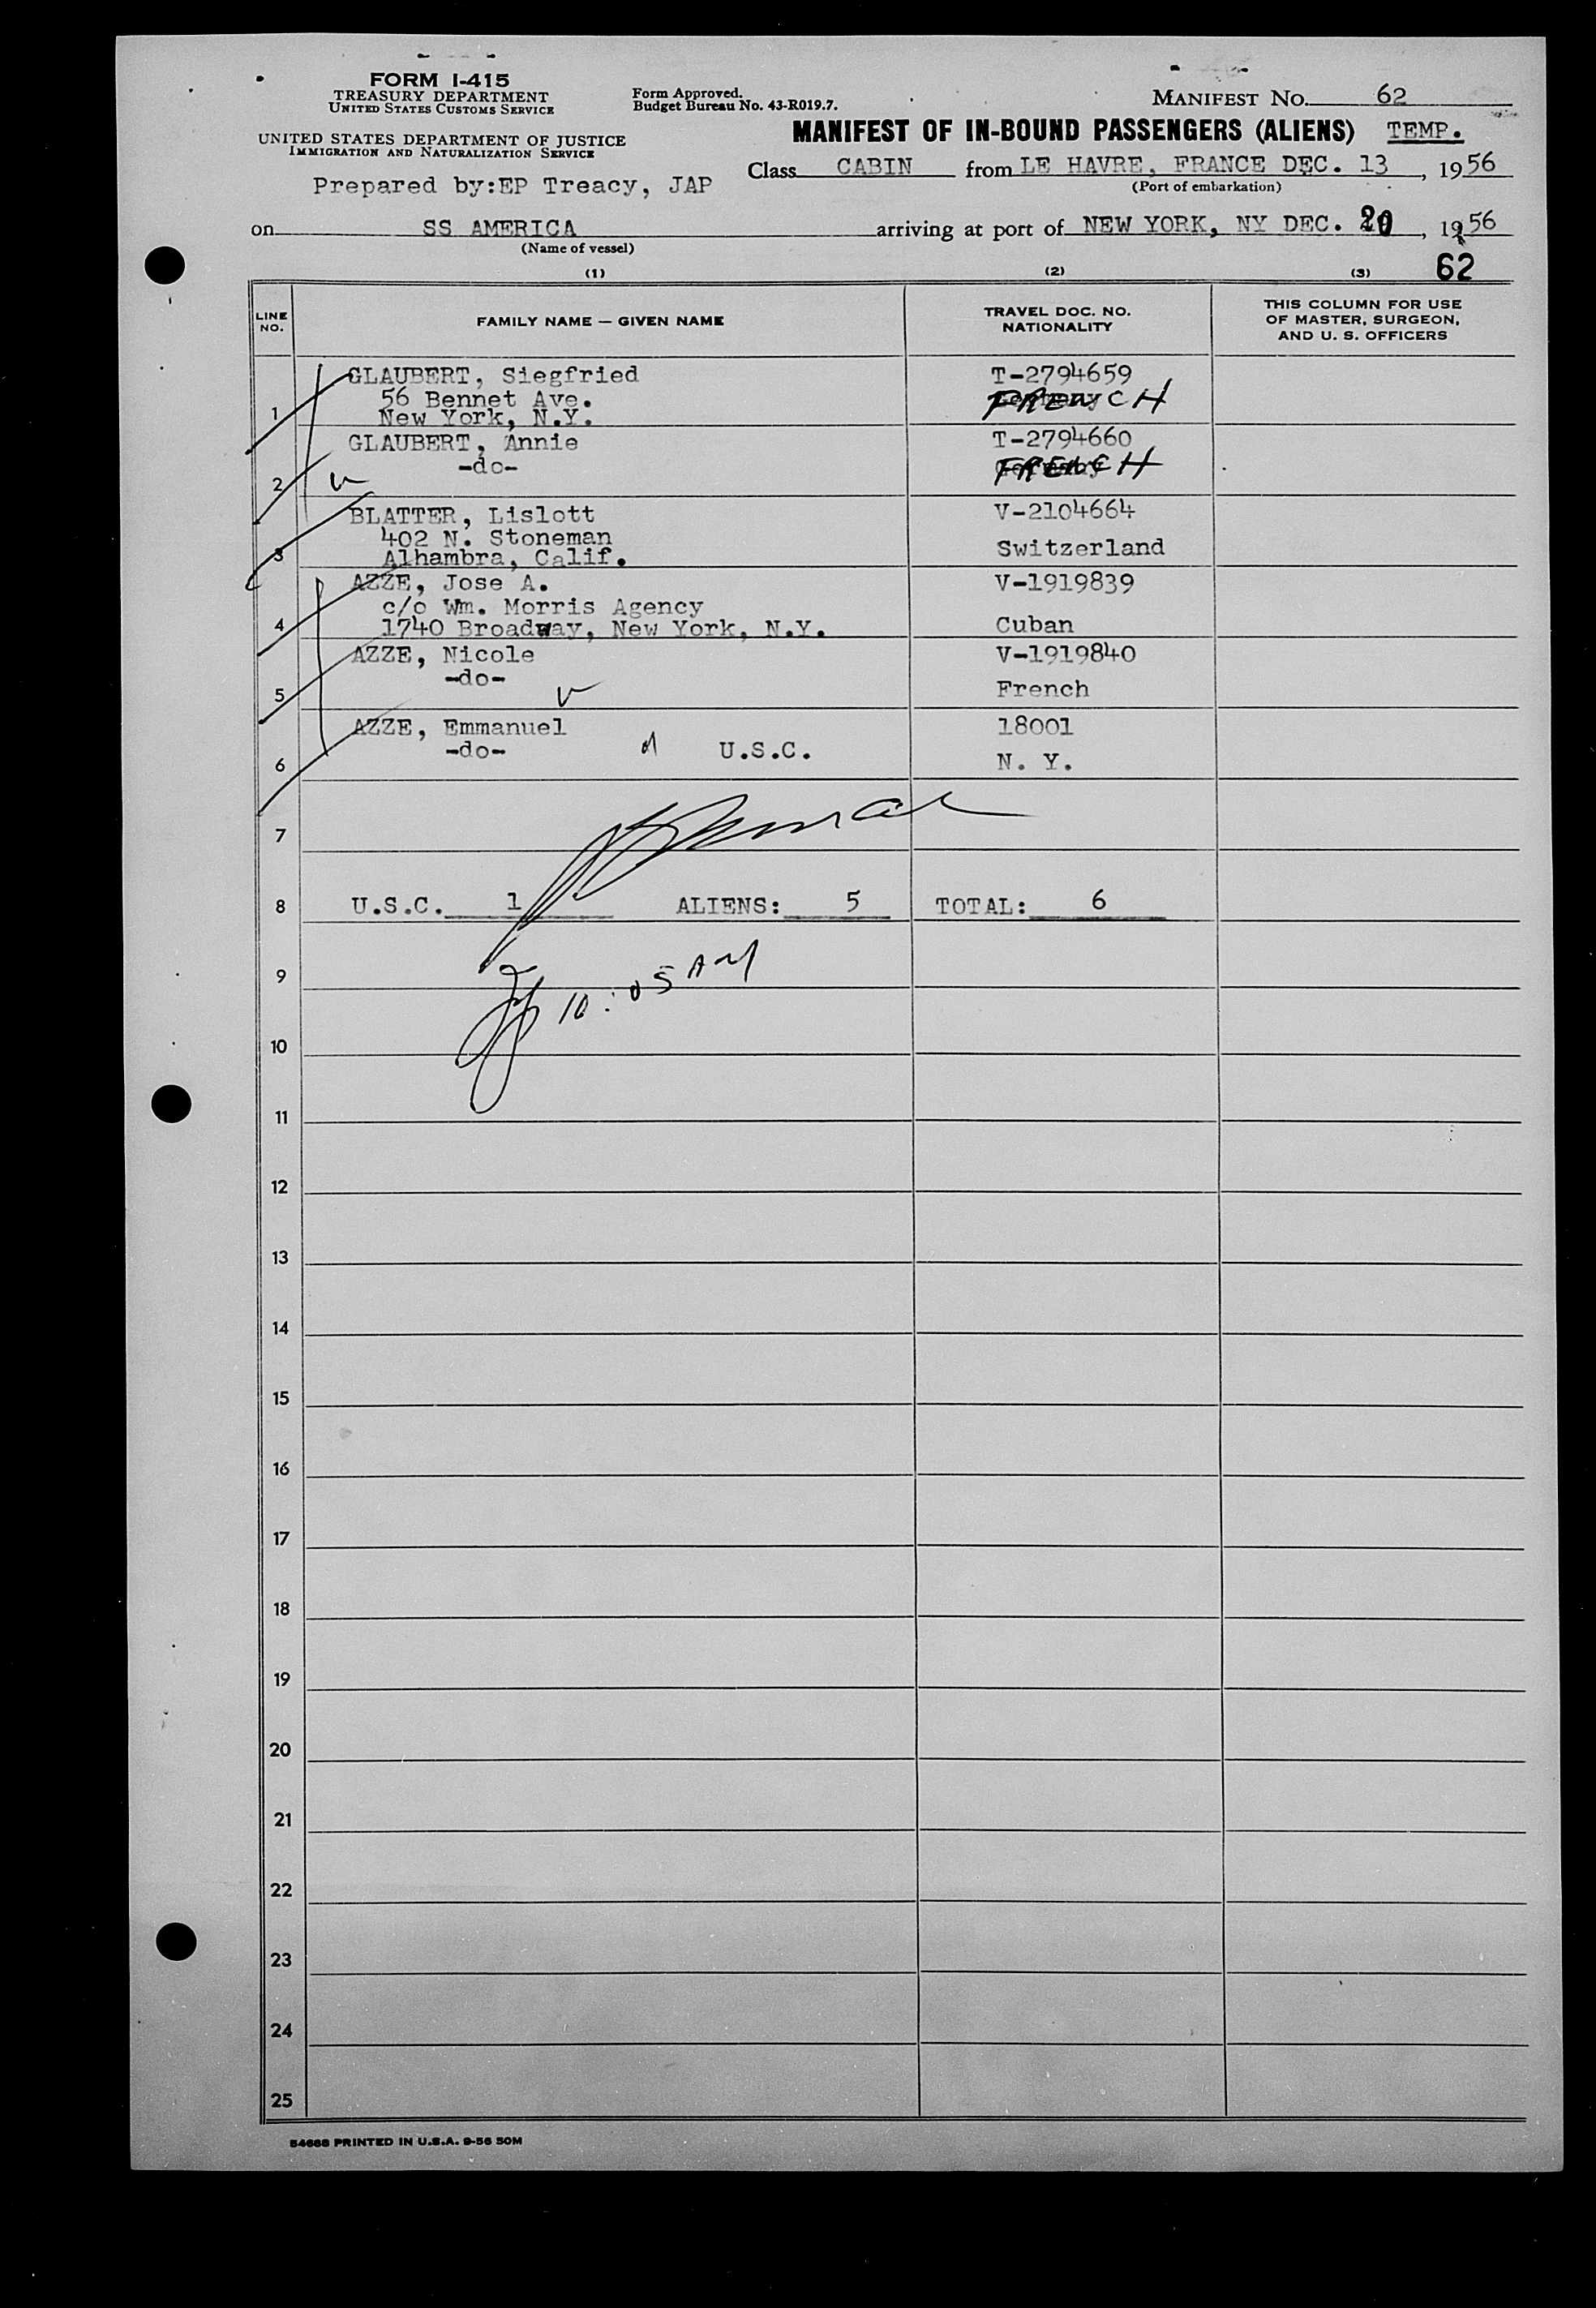 FORM I-415
TREASURY DEPARTMENT
UNITED STATES CUSTOMS SERVICE
UNITED STATES DEPARTMENT OF JUSTICE
IMMIGRATION AND NATURALIZATION SERVICE
Prepared by:EP Treacy, JAP
Form Approved.
Budget Bureau No. 43-R019.7.
MANIFEST NO. 62
MANIFEST OF IN-BOUND PASSENGERS (ALIENS) TEMP.
Class CABIN from LE HAVRE, FRANCE DEC. 13, 1956
(Port of embarkation)
on SS AMERICA arriving at port of NEW YORK, NY DEC. 20, 1956
(Name of vessel)
62
(1) (2) (3)
LINE NO. FAMILY NAME — GIVEN NAME TRAVEL DOC. NO. NATIONALITY THIS COLUMN FOR USE OF MASTER, SURGEON, AND U. S. OFFICERS
GLAUBERT, Siegfried T-2794659
56 Bennet Ave. FRENCH
1 New York, N.Y.
GLAUBERT, Annie T-2794660
-do- FRENCH
2
BLATTER, Lislott V-2104664
402 N. Stoneman
3 Alhambra, Calif. Switzerland
AZZE, Jose A. V-1919839
c/o Wm. Morris Agency
4 1740 Broadway, New York, N.Y. Cuban
AZZE, Nicole V-1919840
-do-
5 French
AZZE, Emmanuel 18001
-do- U.S.C.
6 N. Y.
7
8 U.S.C. 1 ALIENS: 5 TOTAL: 6
9
10:05 AM
10
11
12
13
14
15
16
17
18
19
20
21
22
23
24
25
54668 PRINTED IN U.S.A. 9-56 50M